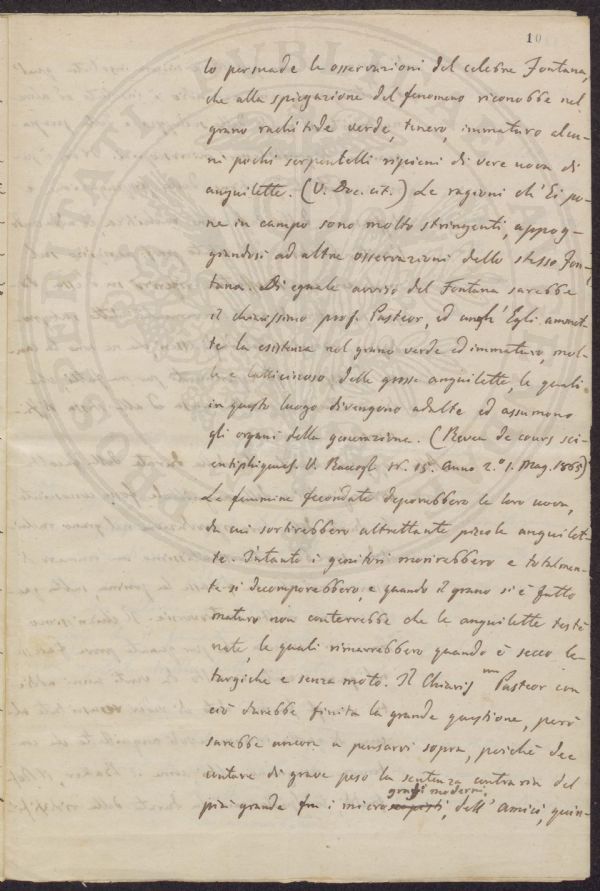 10
lo persuade le osservazioni del celebre Fontana,
che alla spiegazione del fenomeno riconobbe nel
grano rachitide verde, tenero, immaturo alcu-
ni pochi serpentelli ripieni di vere uova di
anguilette. (V. Doc. cit.) Le ragioni ch' Ei po-
ne in campo sono molto stringenti, appog-
giandosi ad altre osservazioni dello stesso Fon-
tana. Di eguale avviso del Fontana sarebbe
il chiarissimo prof. Pasteor, ed anch' Egli amet-
te la esistenza nel grano verde ed immaturo, mol-
le e latticinoso delle grosse anguilette, le quali
in questo luogo divengono adulte ed assumono
gli organi della generazione. (Revea de cours sci-
entiphiques. V. Raccogl. N. 15. Anno 2.° 1. Mag. 1865)
Le femmine fecondate deporebbero le loro uova,
da cui sortirebbero altrettante picole anguilet-
te. Intanto i genitori morirebbero e totalmen-
te si decomporebbero, e quando il grano si è fatto
maturo non conterrebbe che le anguilette testè
nate, le quali rimarrebbero quando è secco le-
targiche e senza moto. Il Chiariss mo Pasteor con
ciò darebbe finita la grande questione, però
sarebbe ancora a pensarvi sopra, poichè dee
contare di grave peso la sentenza contraria del
grafi moderni,
più grande fra i microscopisti, dell' Amici, quin-